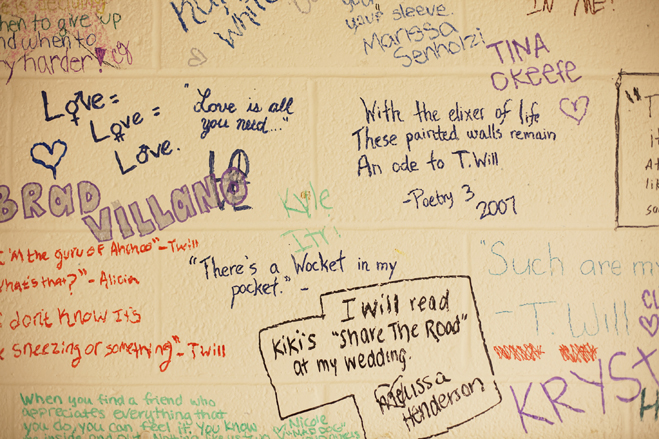 when to give up
and when to
y harder!
White
your sleeve.
Marissa
Senholzi
IN ME!
TINA
OKEEFE
Love =
Love =
Love.
"Love is all
you need..."
With the elixer of life
These painted walls remain
An ode to T.Will
-Poetry 3
2007
BRAD
VILLANO
Kyle
I'm the guru of Ahchoo" -Twill
what's that?" - Alicia
I don't know It's
sneezing or something" - Twill
"There's a Wocket in my
pocket." -
"Such are my
- T. Will
I will read
Kiki's "Share The Road"
at my wedding.
Melissa
Henderson
KRYST
When you find a friend who
appreciates everything that
you do, you can feel it. You know
Nicole